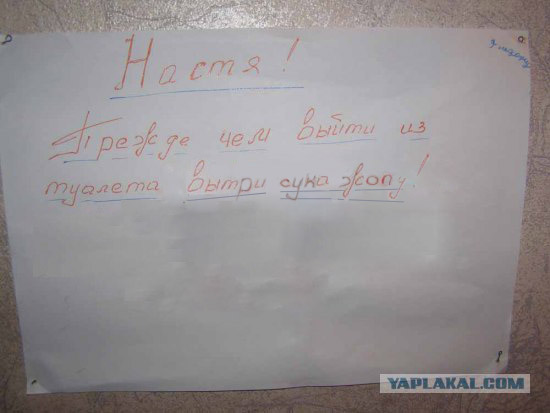 Настя!
Прежде чем выйти из
туалета вытри сука жопу!
YAPLAKAL.COM